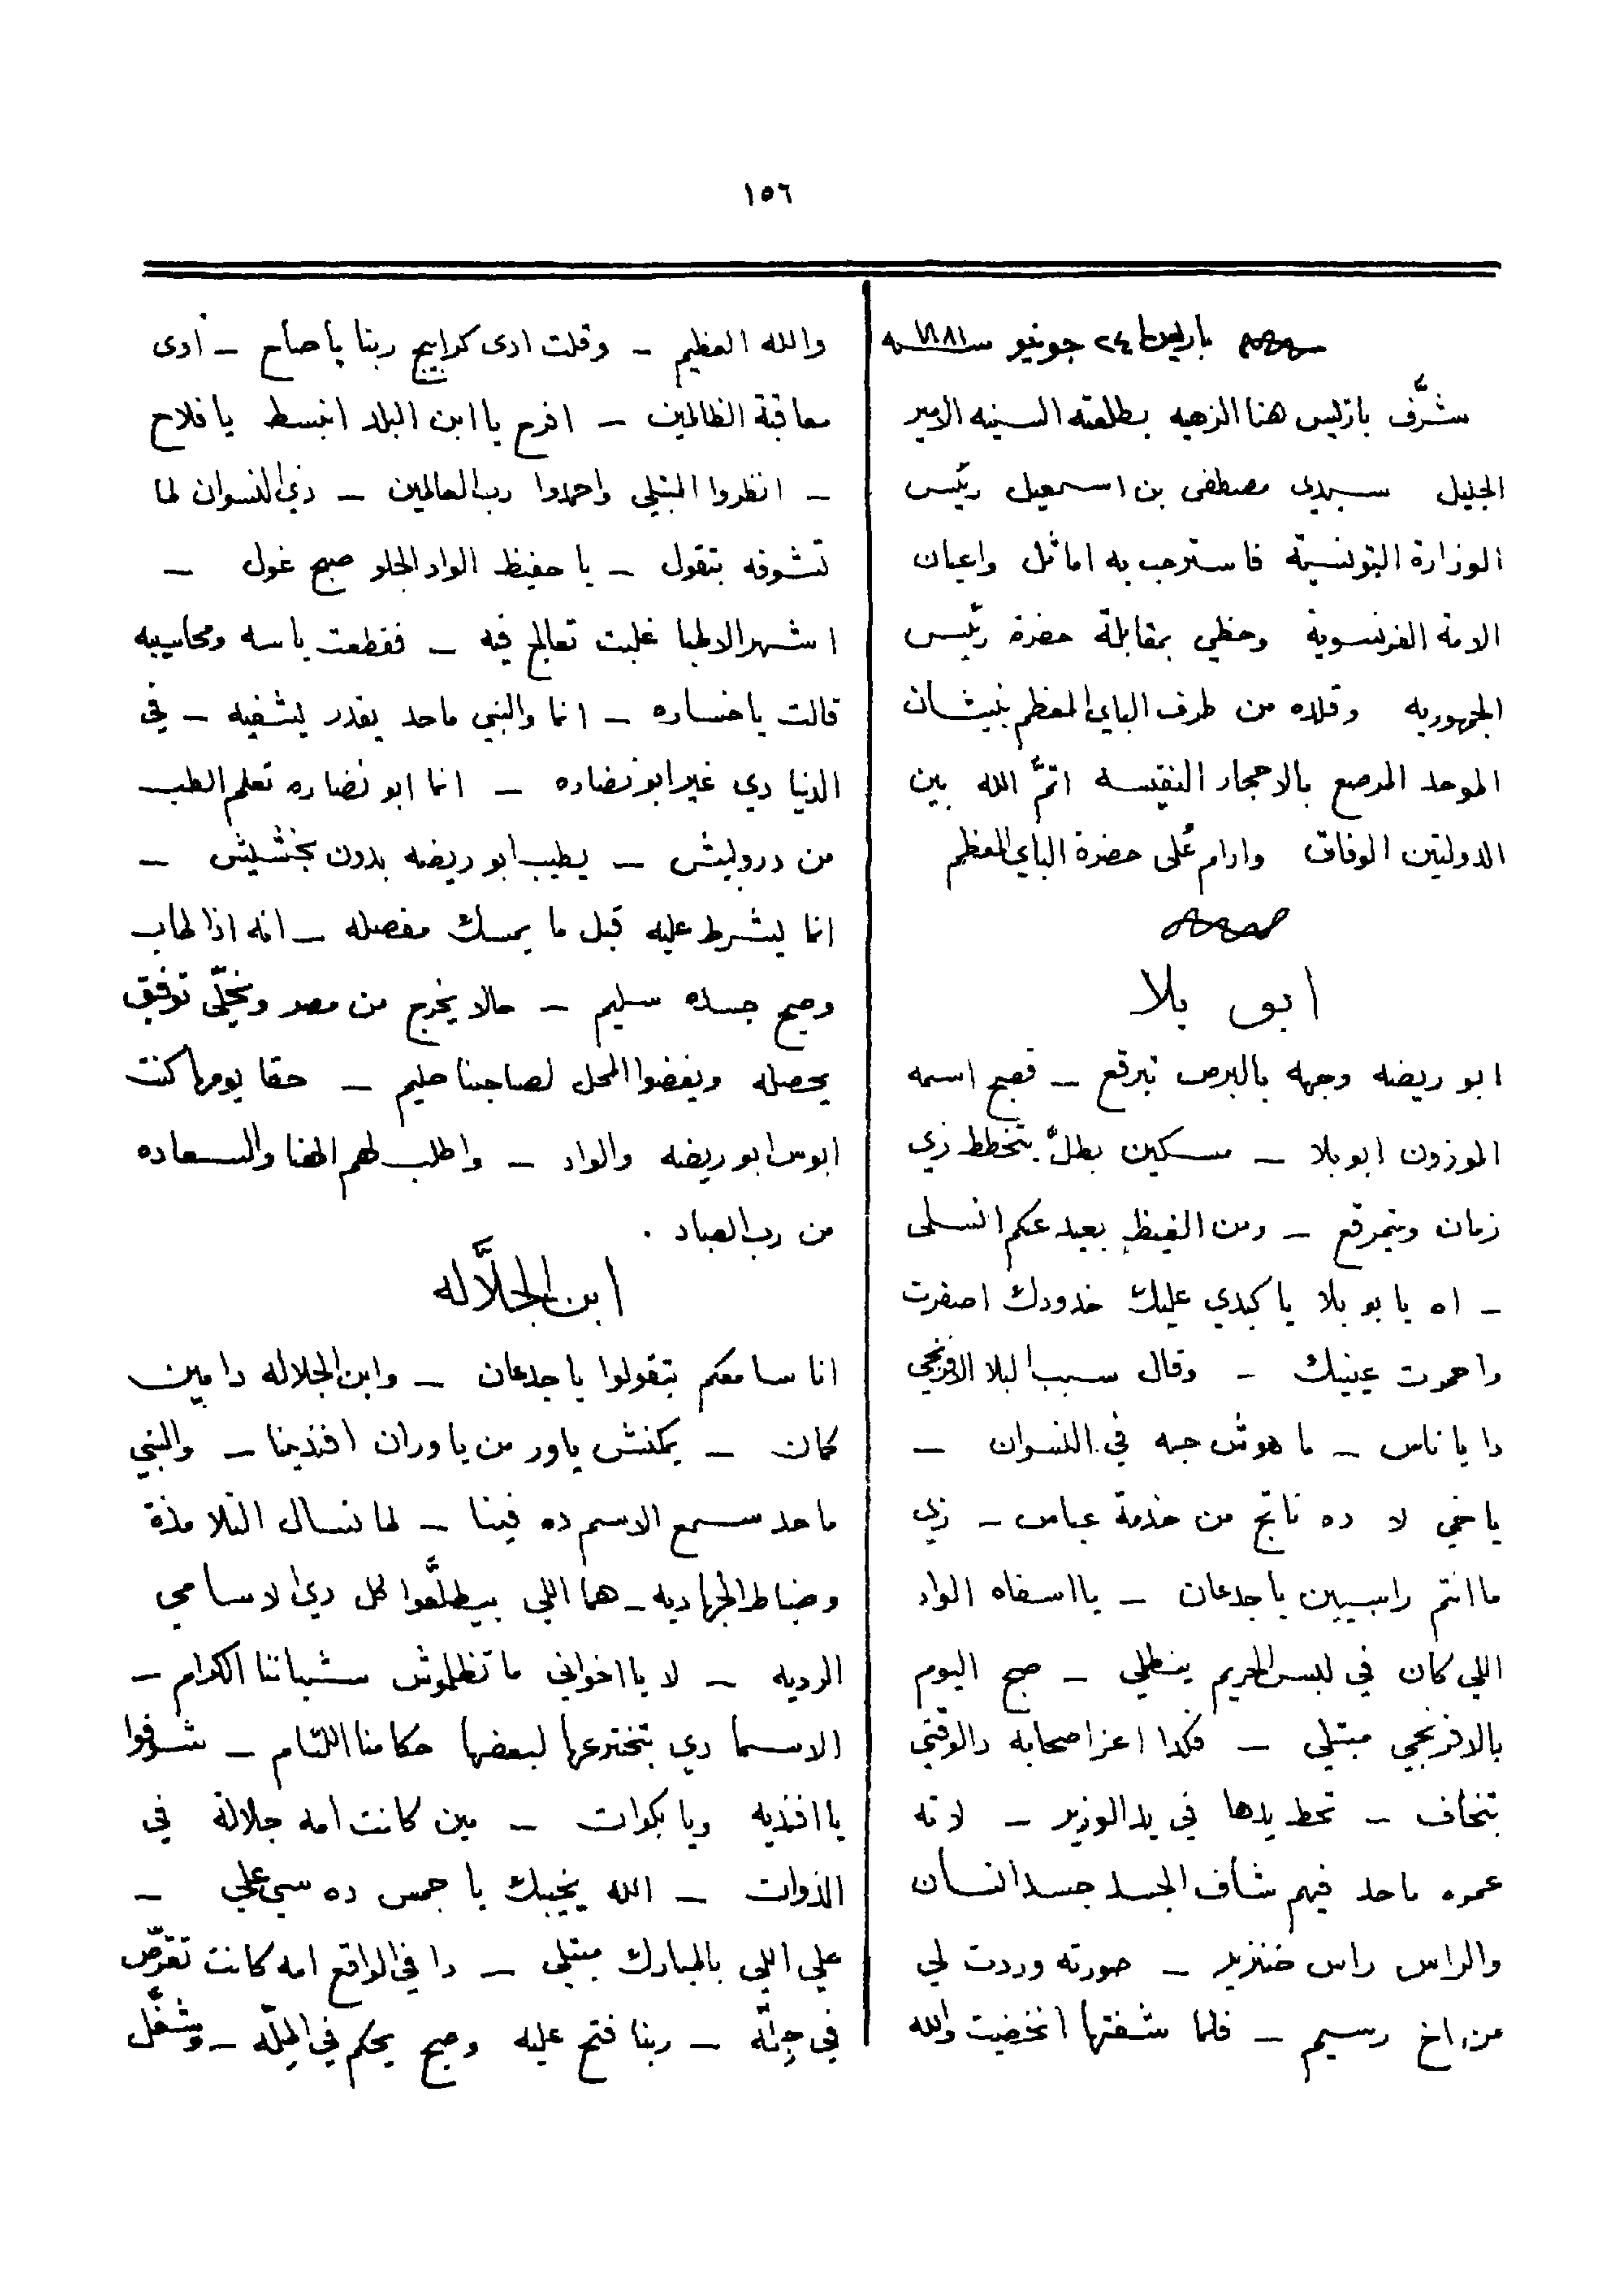 ١٥٦
باريس ٢٤ جونيو سنه ١٨٨١
شرَّف باريس هنا الزهيه بطلعته السنيه الامير
الجليل سيدى مصطفى بن اسمعيل رئيس
الوزارة التونسية فاسترحب به اماثل واعيان
الامة الفرنسوية وحظي بمقابلة حضرة رئيس
الجمهوريه وقلاه من طرف الباي المعظم بنيشان
الموحد المرصع بالاحجار النفيسة اتمَّ الله بين
الدولتين الوفاق وادام عُلى حضرة الباي المعظم
ابو بلا
ابو ريضه وجهه بالبرص تبرقع – فصبح اسمه
الموزون ابو بلا – مسكين بطلّ يتخطط زي
زمان ويتمرقع – ومن الغيظ بعيد عكم انسلى
– اه يا بو بلا يا كبدي عليك خدودك اصفرت
واحمرت عينيك – وقال سبب البلا الافرنجي
دا يا ناس – ما هوش حبه في النسوان –
ياخي لا ده ناتج من خدمة عباس – زي
ما انتم راسيين ياجدعان – يا اسفاه الواد
اللي كان في لبس الحريم ينطلي – صبح اليوم
بالافرنجي مبتلي – فكدا اعز اصحابه دالوقتي
تنخاف – تحط يدها في يد الوزير – لانه
عمره ماحد فيهم شاف الجسد جسد انسان
والراس راس خنزير – صورته وردت لي
من اخ رسيم – فلما شفتها انخضيت والله
والله العظيم – وقلت ادى كرابيج ربنا ياصاح – ادى
معاقبة الظالمين – افرح يا ابن البلد انبسط يا فلاح
– انظروا المبتلي واحمدوا رب العالمين – دي النسوان لما
تشوفه بتقول – يا حفيظ الواد الحلو صبح غول –
اشهر الاطبا غلبت تعالج فيه – فقطعت ياسه ومحاسيبه
قالت ياخساره – انما والنبي ماحد يقدر يشفيه – في
الدنيا دي غير ابو نضاره – انما ابو نضاره تعلم الطب
من درويش – يطيب ابو ريضه بدون بخشيش –
انما يشرط عليه قبل ما يمسك مفصله – انه اذا طاب
وصبح جسده سليم – حالا يخرج من مصر ويخلّي توفيق
يحصله ويفضوا المحل لصاحبنا حليم – حقا يومها كنت
ابوس ابو ريضه والواد – واطلب لهم الهنا والسعاده
من رب العباد .
ابن الجلَّاله
انا سامعكم بتقولوا ياجدعان – وابن الجلاله دا مين
كمان – يمكنش ياور من ياوران افندينا – والنبي
ماحد سمع الاسم ده فينا – لما نسال التلامذة
وضباط الجهاديه – هما اللي بيطلَّعوا كل دي الاسامي
الرديه – لا يا اخواني ما تظلموش شباتنا الكرام –
الاسما دي بتخترعها لبعضها حكامنا اللئام – شوفوا
يا افنديه ويا بكوات – مين كانت امه جلالة في
الذوات – الله يخيبك يا حمس ده سي علي –
علي اللي بالمبارك مبتلي – دا في الواقع امه كانت تقرّص
في جلّة – ربنا فتح عليه وصبح يحكم في الملّه – وشغَّل